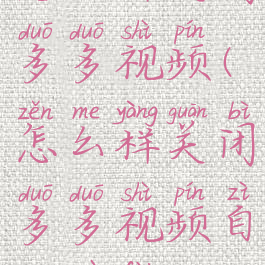 duō duō shì pín
多多视频(
zěn me yàng guān bì
怎么样关闭
duō duō shì pín zì
多多视频自